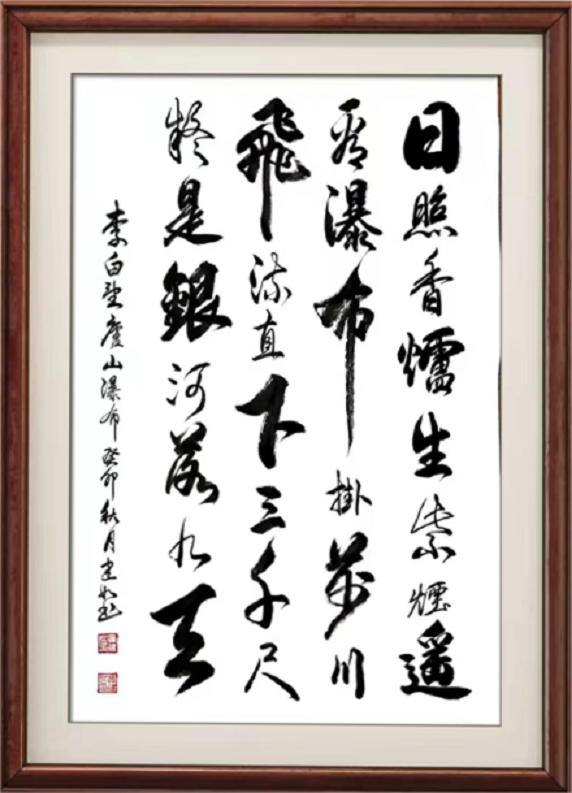 日照香爐生紫煙遥
看瀑布掛前川
飛流直下三千尺
疑是銀河落九天
李白望廬山瀑布 癸卯秋月